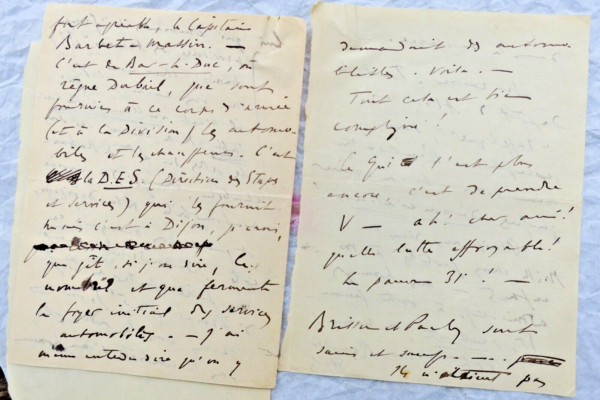 fort agréable, le Capitaine
Barbet-Massin. —
C'est de Bar-le-Duc, où
règne Dubail, que sont
fournies à ce corps d'armée
(et à la Division) les automo-
biles et les chauffeurs. C'est
la D.E.S. (Direction des Etapes
et Services) qui les fournit
mais c'est à Dijon, je crois,
que gît, si j'ose dire, le
nombril et que fermente
le foyer initial des services
automobiles. — J'ai
même entendu dire qu'on y
demandait des automo-
bilistes. Voilà. —
Tout cela est bien
compliqué!
Ce qui l'est plus
encore, c'est de prendre
V — ah! cher ami!
quelle lutte effroyable!
Le pauvre 31e! —
et
sains et saufs —
Ils n'étaient pas